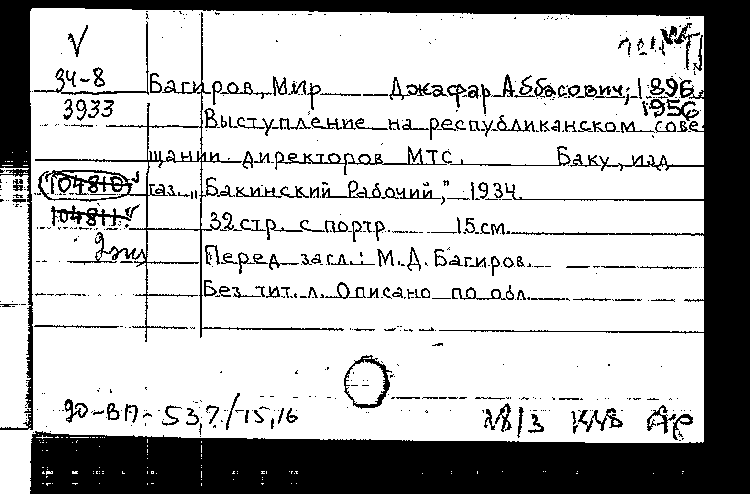 V
34-8 Багиров, Мир Джафар Аббасович, 1896-
3933 1956
Выступление на республиканском сове-
щании директоров МТС. Баку, изд.
104810 газ. „Бакинский Рабочий," 1934.
104811 32 стр. с портр. 15 см.
2 экз Перед загл.: М.Д. Багиров.
Без тит. л. Описано по обл.
90-ВП-53,7/15,16